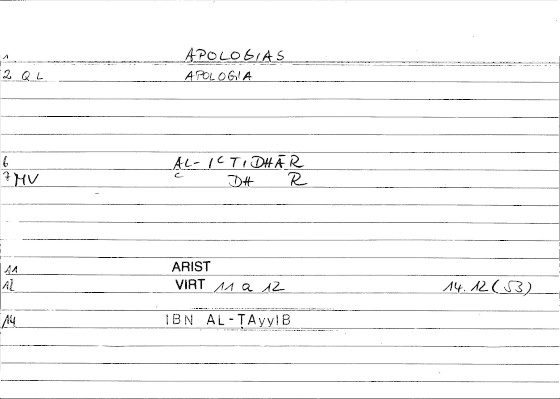 1 APOLOGIAS
2 QL APOLOGIA
6 AL-IʿTIDHĀR
7 MV ʿ DH R
11 ARIST
12 VIRT 11 a 12 14.12 (53)
14 IBN AL-ṬAyyIB